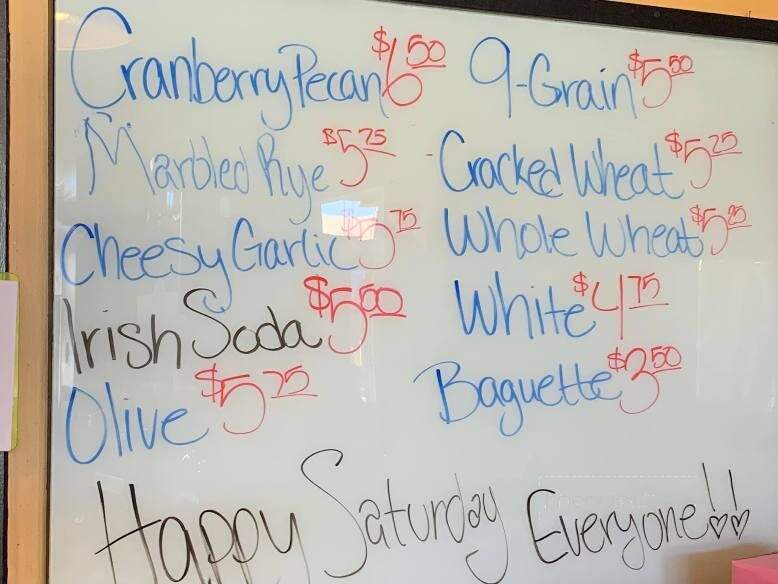 Cranberry Pecan $6.50
Marbled Rye $5.75
Cheesy Garlic $5.75
Irish Soda $5.00
Olive $5.75
9-Grain $5.50
Cracked Wheat $5.25
Whole Wheat $5.25
White $4.75
Baguette $3.50
Happy Saturday Everyone!!